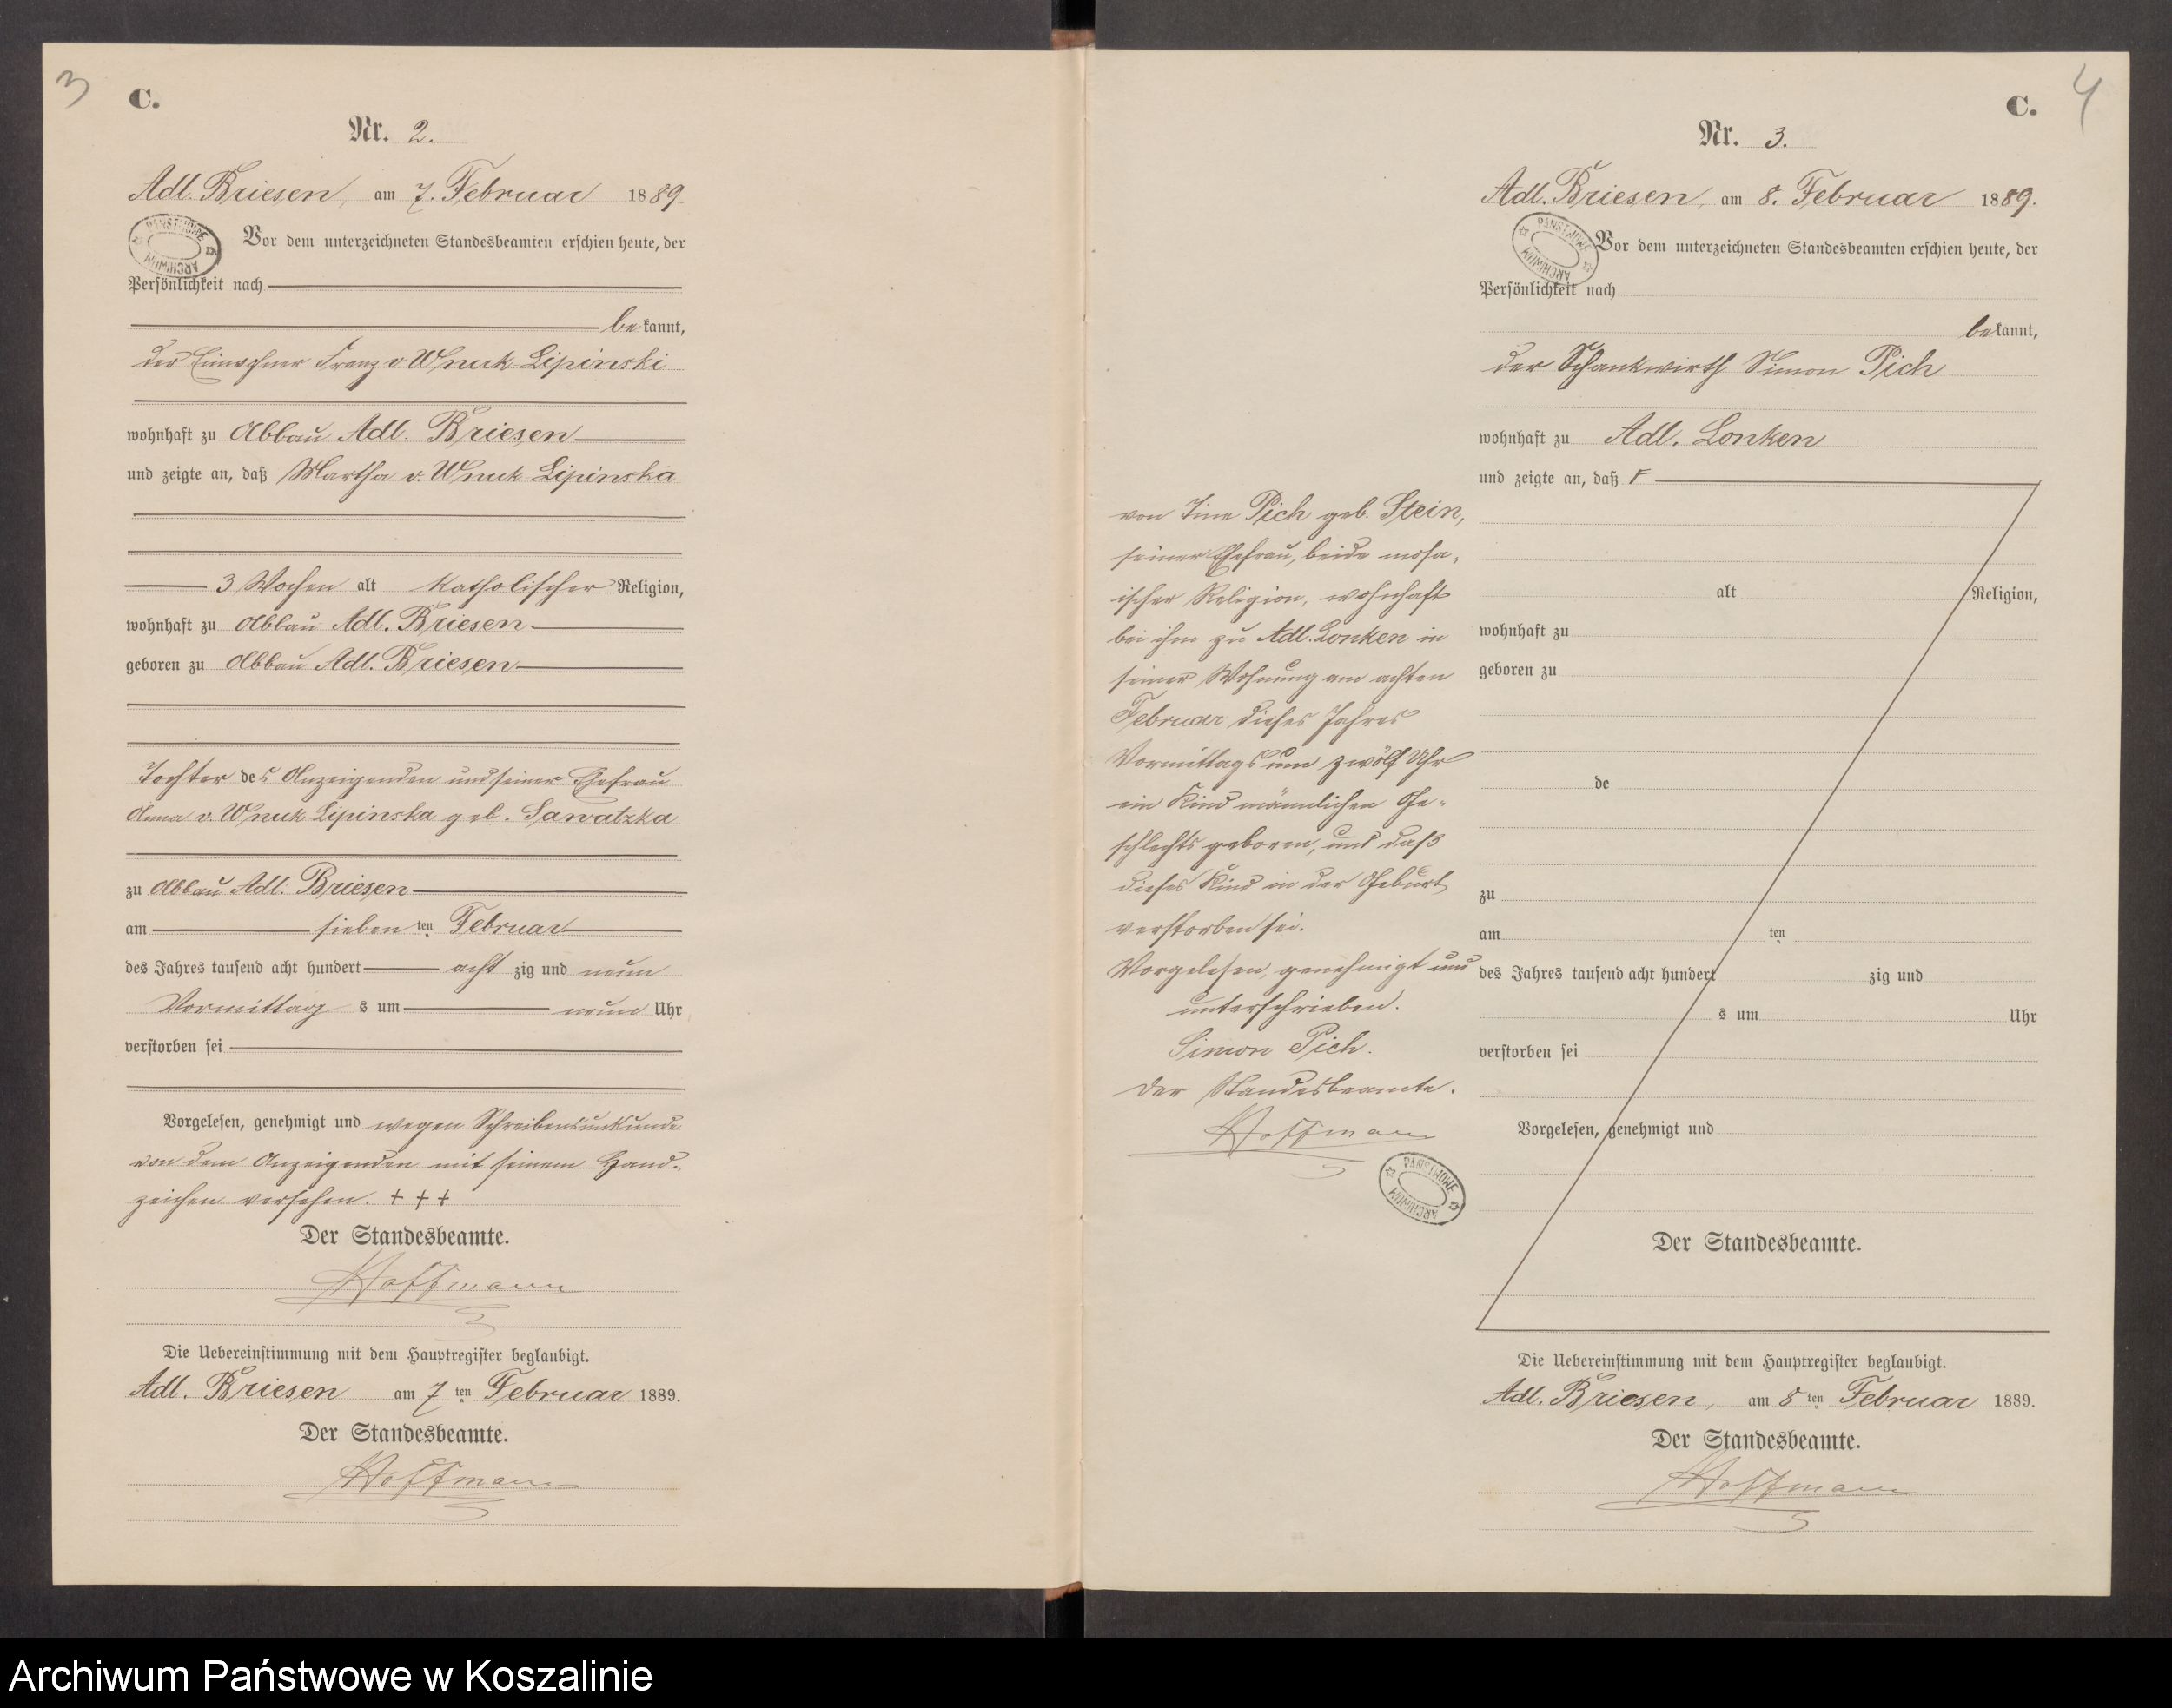 3
C.
Nr. 2.
Adl. Briesen, am 7. Februar 1889.
PAŃSTWOWE ARCHIWUM
Vor dem unterzeichneten Standesbeamten erschien heute, der
Persönlichkeit nach
bekannt,
der Einwohner Franz v. Wnuk Lipinski
wohnhaft zu Abbau Adl. Briesen
und zeigte an, daß Martha v. Wnuk Lipinska
3 Wochen alt katholischer Religion,
wohnhaft zu Abbau Adl. Briesen
geboren zu Abbau Adl. Briesen
Tochter des Anzeigenden und seiner Ehefrau
Anna v. Wnuk Lipinska geb. Sawatzka
zu Abbau Adl. Briesen
am siebenten Februar
des Jahres tausend acht hundert acht zig und neun
Vormittag s um neun Uhr
verstorben sei
Vorgelesen, genehmigt und wegen Schreibensunkunde
von dem Anzeigenden mit seinem Hand-
zeichen versehen. + + +
Der Standesbeamte.
Hoffmann
Die Uebereinstimmung mit dem Hauptregister beglaubigt.
Adl. Briesen am 7ten Februar 1889.
Der Standesbeamte.
Hoffmann
4
C.
Nr. 3.
Adl. Briesen, am 8. Februar 1889.
PAŃSTWOWE ARCHIWUM
Vor dem unterzeichneten Standesbeamten erschien heute, der
Persönlichkeit nach
bekannt,
der Schankwirth Simon Pich
wohnhaft zu Adl. Lonken
und zeigte an, daß
von Pich geb. Stein,
seiner Ehefrau, beide mosa-
ischer Religion, wohnhaft
bei ihm zu Adl. Lonken in
seiner Wohnung am achten
Februar dieses Jahres
Vormittags um zwölf Uhr
ein Kind männlichen Ge-
schlechts geboren, und daß
dieses Kind in der Geburt
verstorben sei.
Vorgelesen, genehmigt und
unterschrieben.
Simon Pich.
Der Standesbeamte.
Hoffmann
PAŃSTWOWE ARCHIWUM
alt Religion,
wohnhaft zu
geboren zu
de
zu
am ten
des Jahres tausend acht hundert zig und
s um Uhr
verstorben sei
Vorgelesen, genehmigt und
Der Standesbeamte.
Die Uebereinstimmung mit dem Hauptregister beglaubigt.
Adl. Briesen, am 8ten Februar 1889.
Der Standesbeamte.
Hoffmann
Archiwum Państwowe w Koszalinie